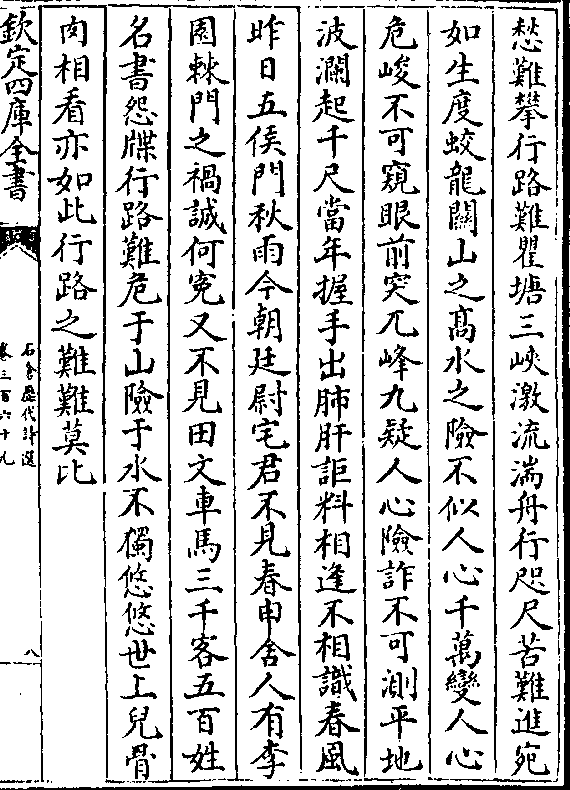 愁難攀行路難瞿塘三峽激流湍舟行咫尺苦難進宛
如生度蛟龍關山之髙水之險不似人心千萬變人心
危峻不可窺眼前突兀峰九疑人心險詐不可測平地
波瀾起千尺當年握手出肺肝詎料相逢不相識春風
昨日五侯門秋雨今朝廷尉宅君不見春申舍人有李
園棘門之禍誠何寃又不見田文車馬三千客五百姓
名書怨牒行路難危于山險于水不獨悠悠世上兒骨
肉相看亦如此行路之難難莫比
欽定四庫全書
石倉歷代詩選
卷三百六十九
八